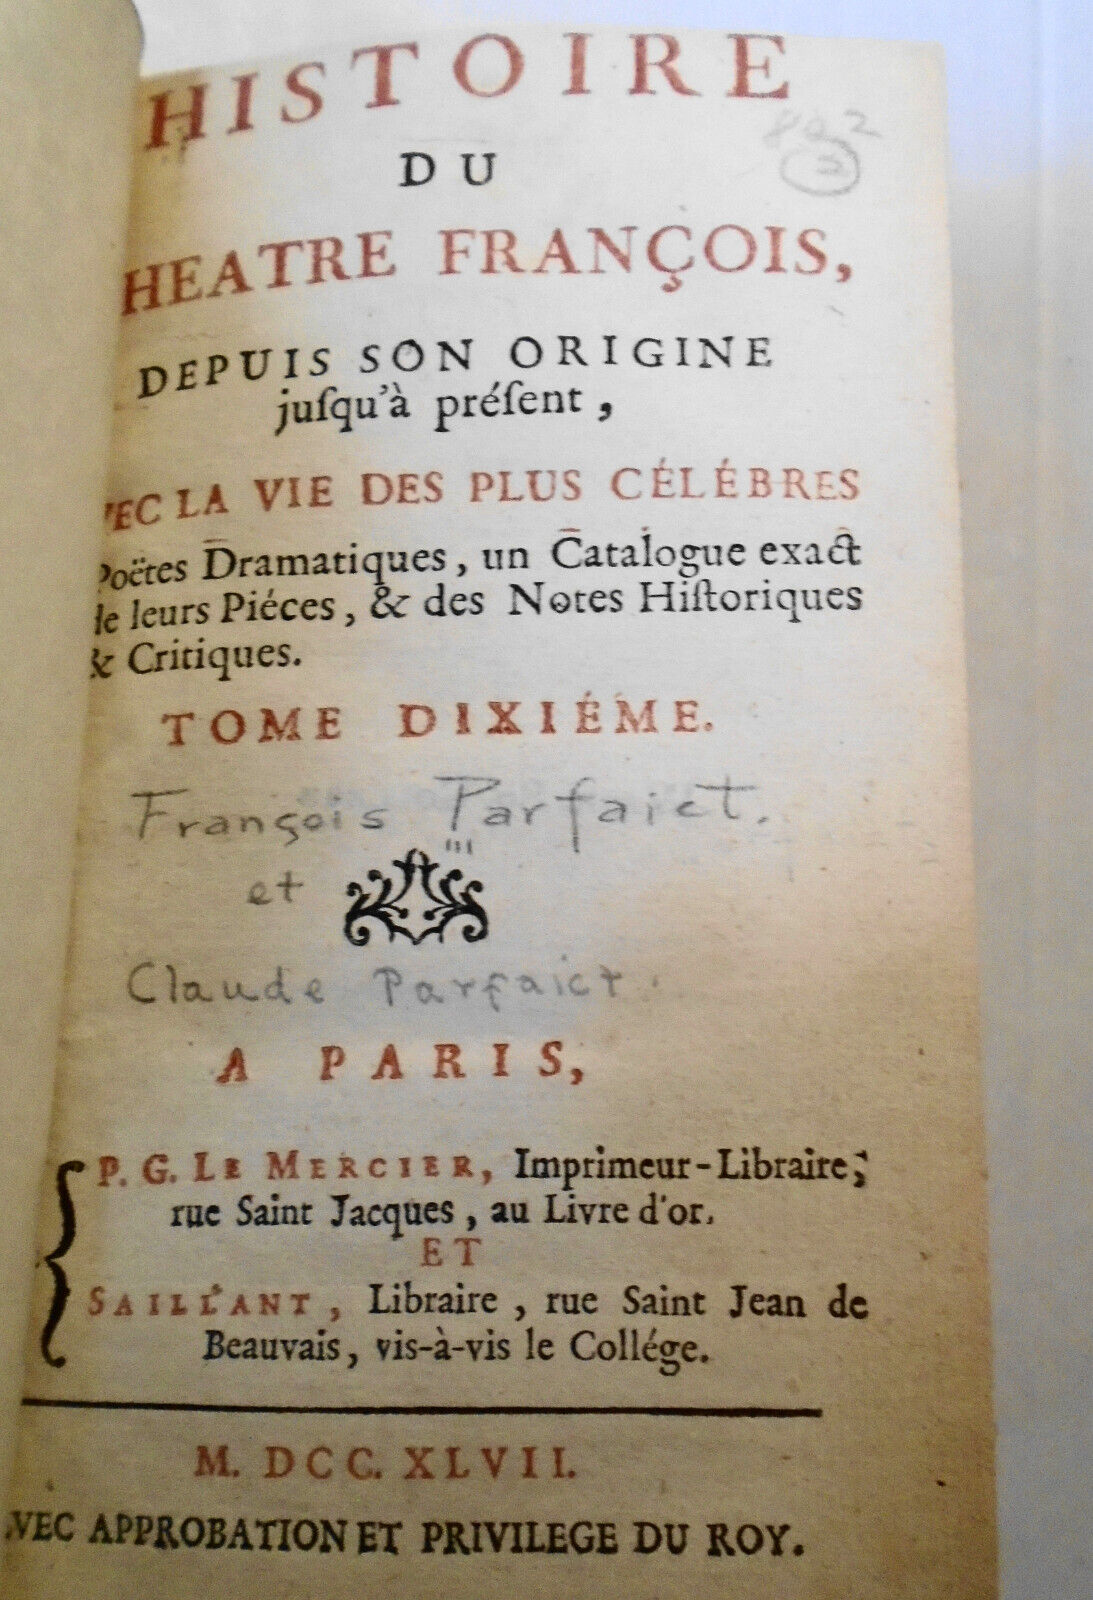 HISTOIRE
DU
HEATRE FRANÇOIS,
DEPUIS SON ORIGINE
juſqu'à préſent,
VEC LA VIE DES PLUS CÉLÉBRES
Poëtes Dramatiques, un Catalogue exact
de leurs Piéces, & des Notes Hiſtoriques
& Critiques.
TOME DIXIÉME.
François Parfaict.
et
Claude Parfaict.
A PARIS,
P. G. LE MERCIER, Imprimeur-Libraire;
rue Saint Jacques, au Livre d'or.
ET
SAILLANT, Libraire, rue Saint Jean de
Beauvais, vis-à-vis le Collége.
M. DCC. XLVII.
AVEC APPROBATION ET PRIVILEGE DU ROY.